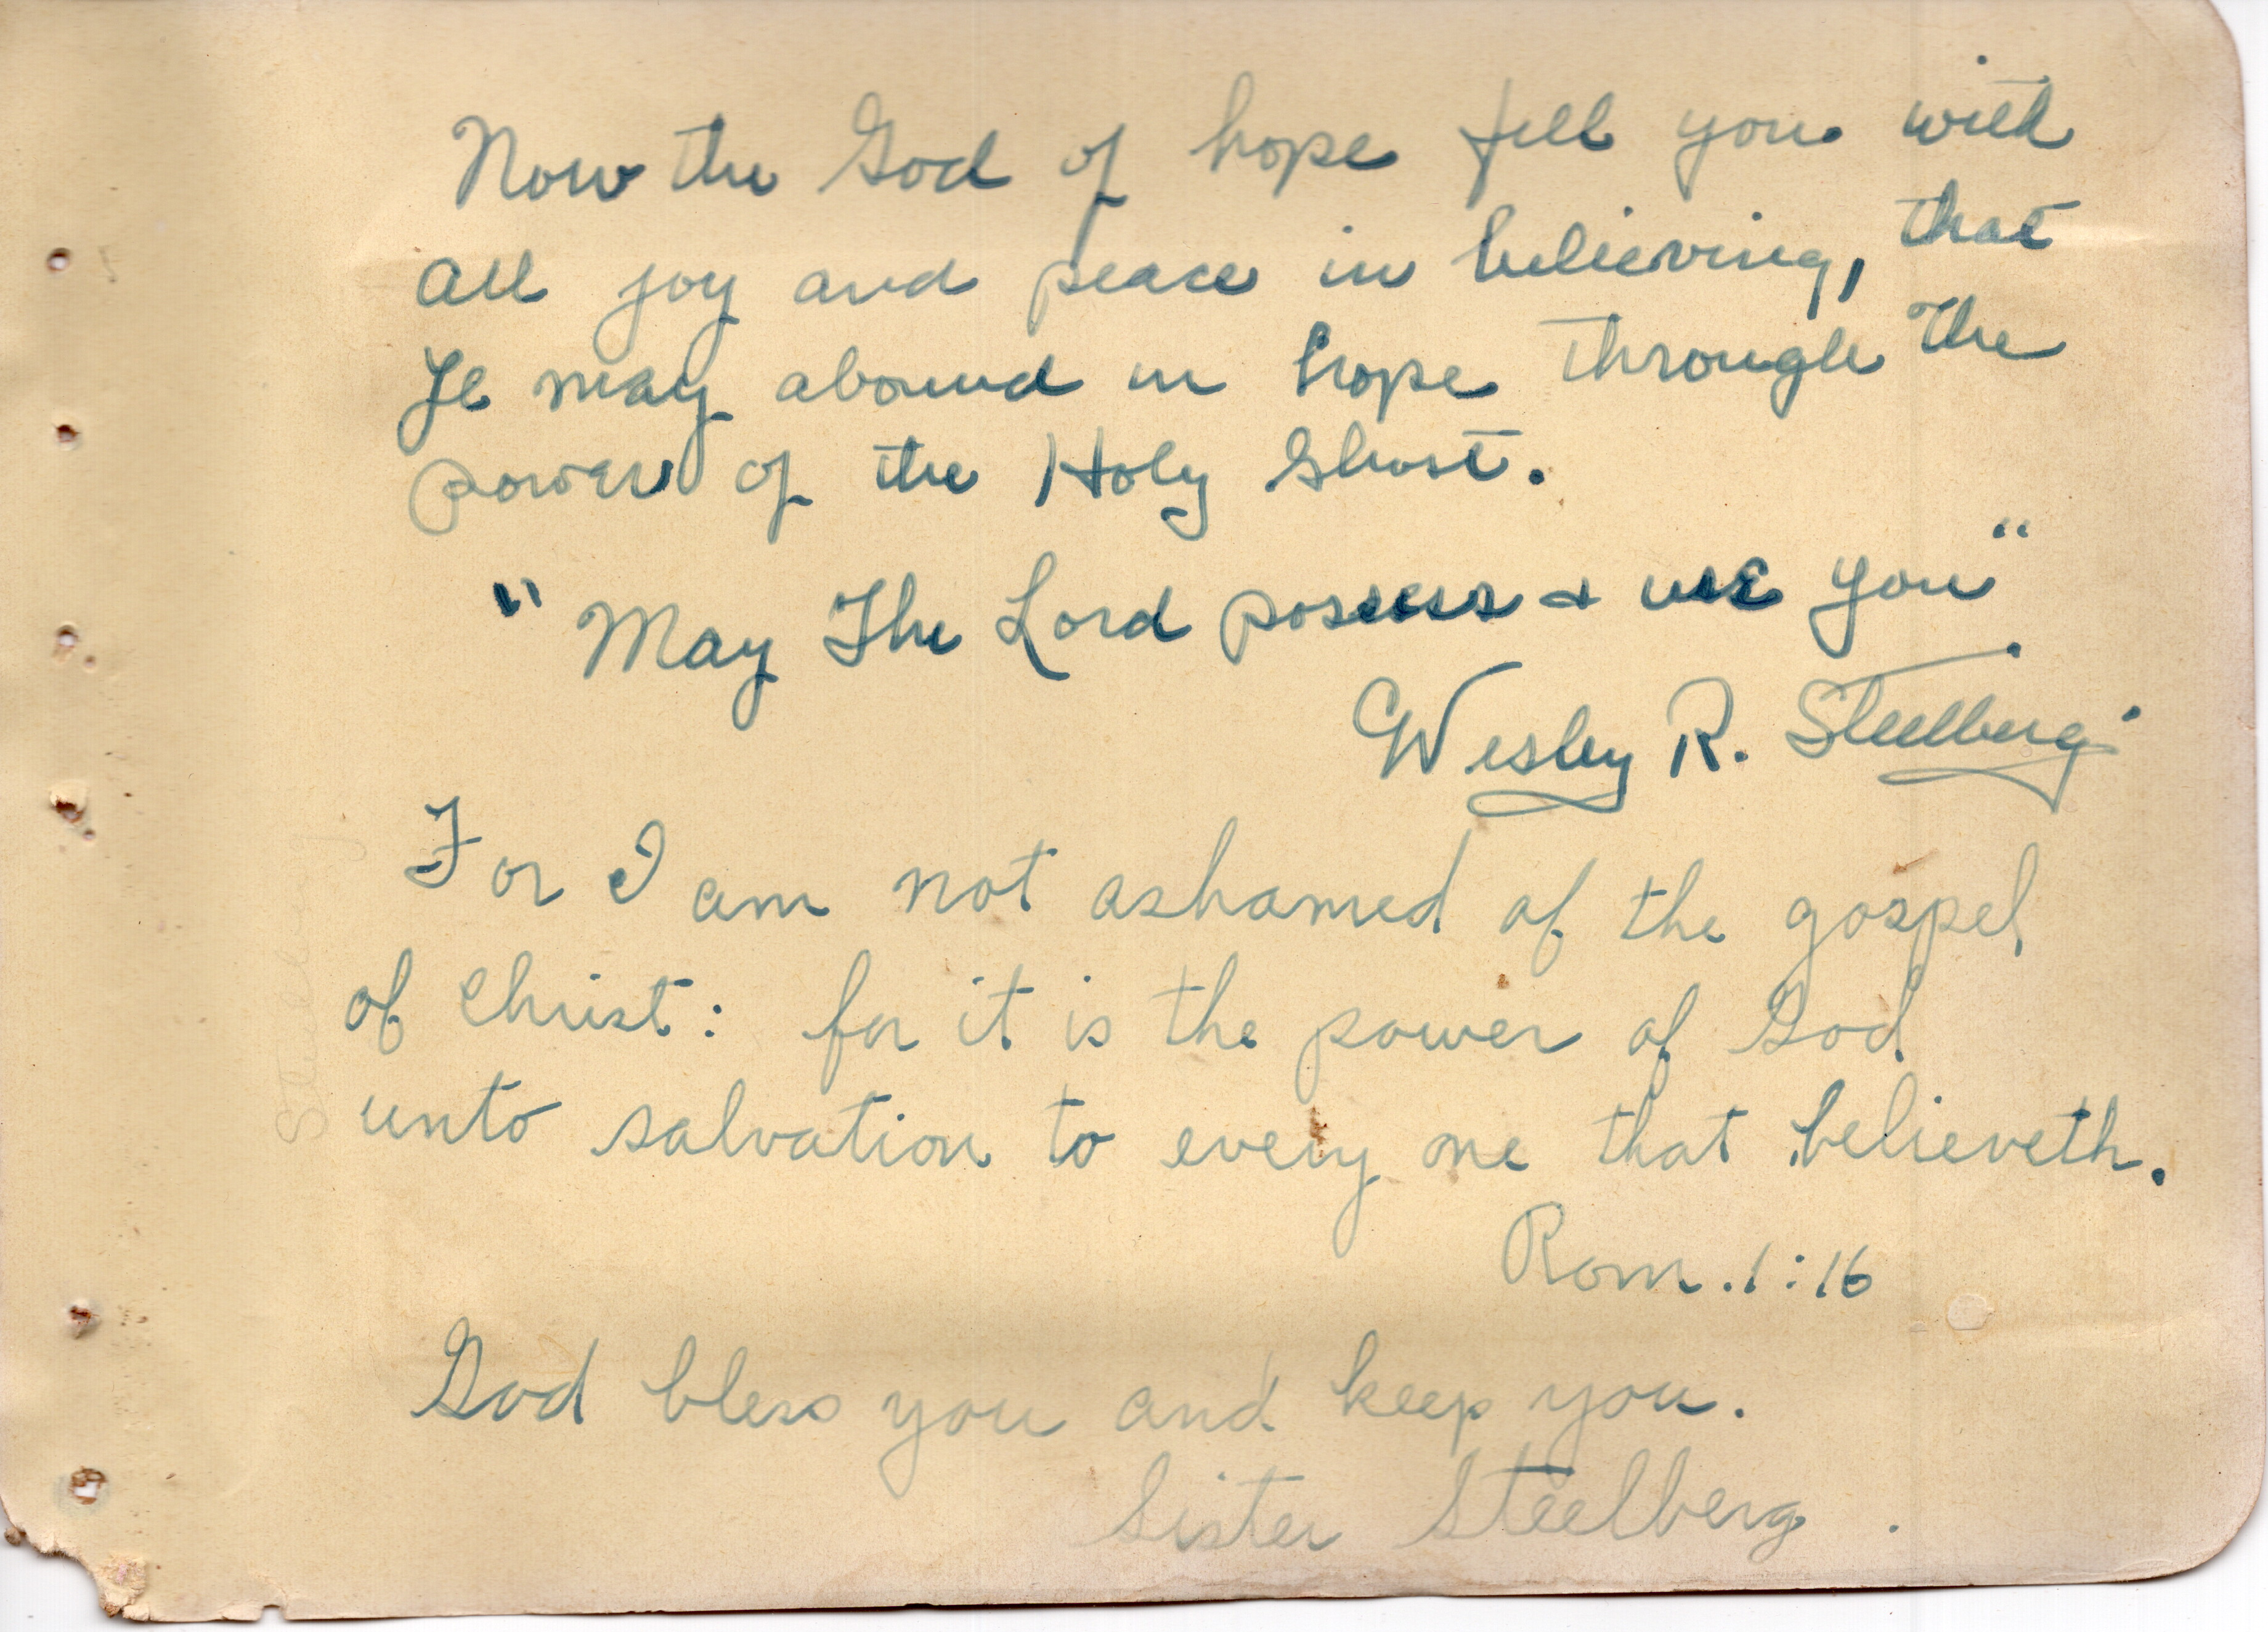 Now the God of hope fill you with
all joy and peace in believing, that
Ye may abound in hope through the
power of the Holy Ghost.
"May The Lord possess & use you"
Wesley R. Steelberg
For I am not ashamed of the gospel
of Christ: for it is the power of God
unto salvation to every one that believeth.
Rom. 1:16
God bless you and keep you.
Sister Steelberg.
Steelberg